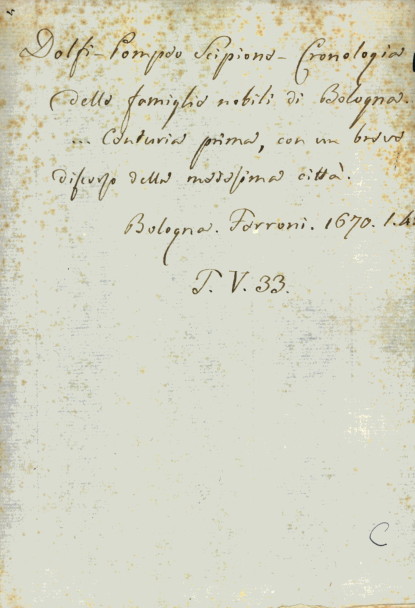 Dolfi - Pompeo Scipione - Cronologia
delle famiglie nobili di Bologna
... Centuria prima, con un breve
discorso della medesima città.
Bologna. Ferroni. 1670. 1.4:
T. V. 33.
C